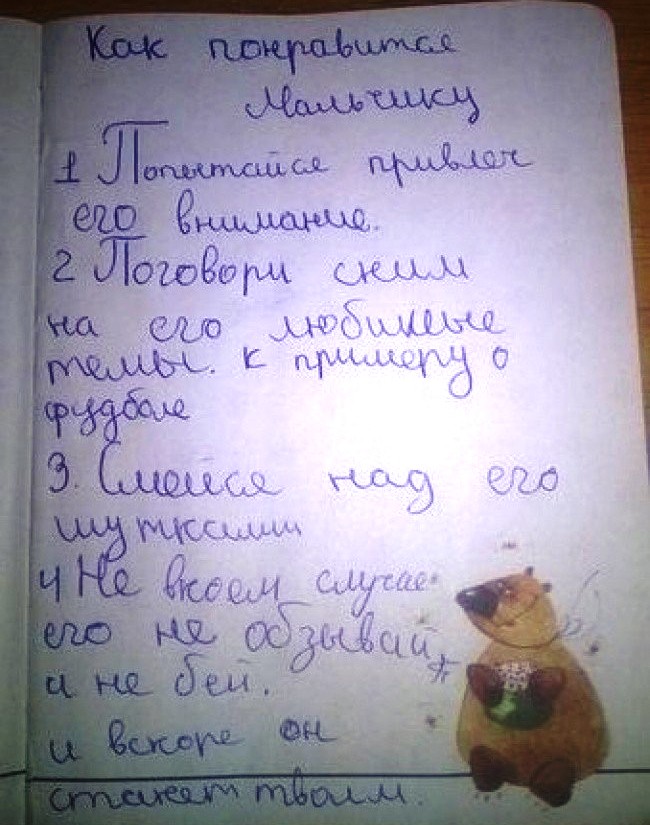 Как понравится
Мальчику
1 Попытайся привлеч
его внимание.
2 Поговори сним
на его любимые
темы. к примеру о
фудбале
3. Смейся над его
шутками
4 Не вкоем случае
его не обзывай,
и не бей.
и вскоре он
станет твоим.